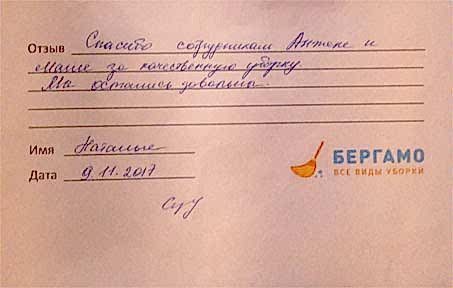 Отзыв Спасибо сотрудникам Антоне и
Маше за качественную уборку
Мы остались довольны.
Имя Наталья
Дата 9.11.2017
БЕРГАМО
ВСЕ ВИДЫ УБОРКИ